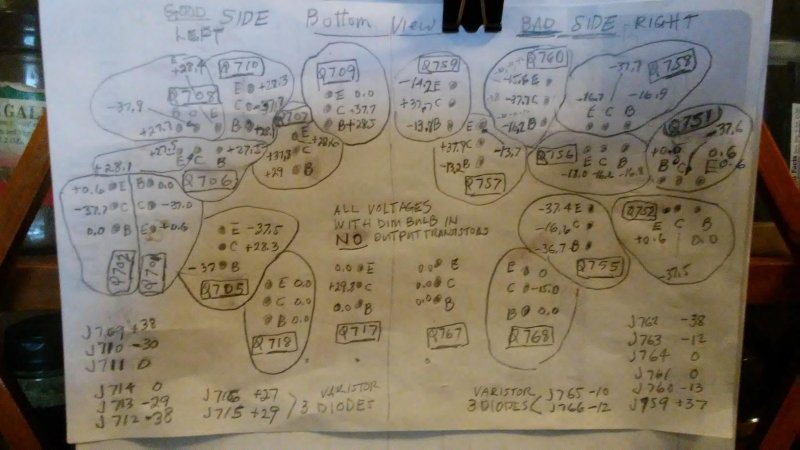 GOOD SIDE Bottom View BAD SIDE - RIGHT
LEFT
Q710
E +28.3
C -37.8
B +28.1
+28.4
Q708
-37.9
B C E
+27.7
Q709
E 0.0
C -37.7
B +28.5
Q759
-14.2 E
+37.7 C
-13.8 B
Q760
-15.6 E
-37.7 C
-16.2 B
Q758
-37.7
-16.7
-16.9
E C B
Q707
E +28.6
+37.8 C
+29 B
E
+37.9 C
-13.2 B
-13.7
Q757
Q756
E C B
-17.0 -16.2 -16.8
Q751
-37.6
+0.0
0.6
B C E 0.6
+27.5 +27.5
E C B
+28.1
Q706
+0.6 E
-37.7 C
0.0 B
Q702
B 0.0
C -37.0
E +0.6
E -37.5
C +28.3
-37 B
Q705
ALL VOLTAGES
WITH DIM BULB IN
NO OUTPUT TRANSISTORS
-37.4 E
-16.6 C
-36.7 B
Q755
Q752
E C B
+0.6 0.0
-37.5
E 0.0
C 0.0
B 0.0
Q718
0.0 E
+29.8 C
0.0 B
Q717
0.0 E
0.0 C
0.0 B
Q767
E 0
C -15.0
B 0.0
Q768
J709 +38
J710 -30
J711 0
J714 0
J713 -29
J712 -38
J716 +27
J715 +29
VARISTOR
3 DIODES
VARISTOR
3 DIODES
J765 -10
J766 -12
J762 -38
J763 -12
J764 0
J761 0
J760 -13
J759 +37
GAL